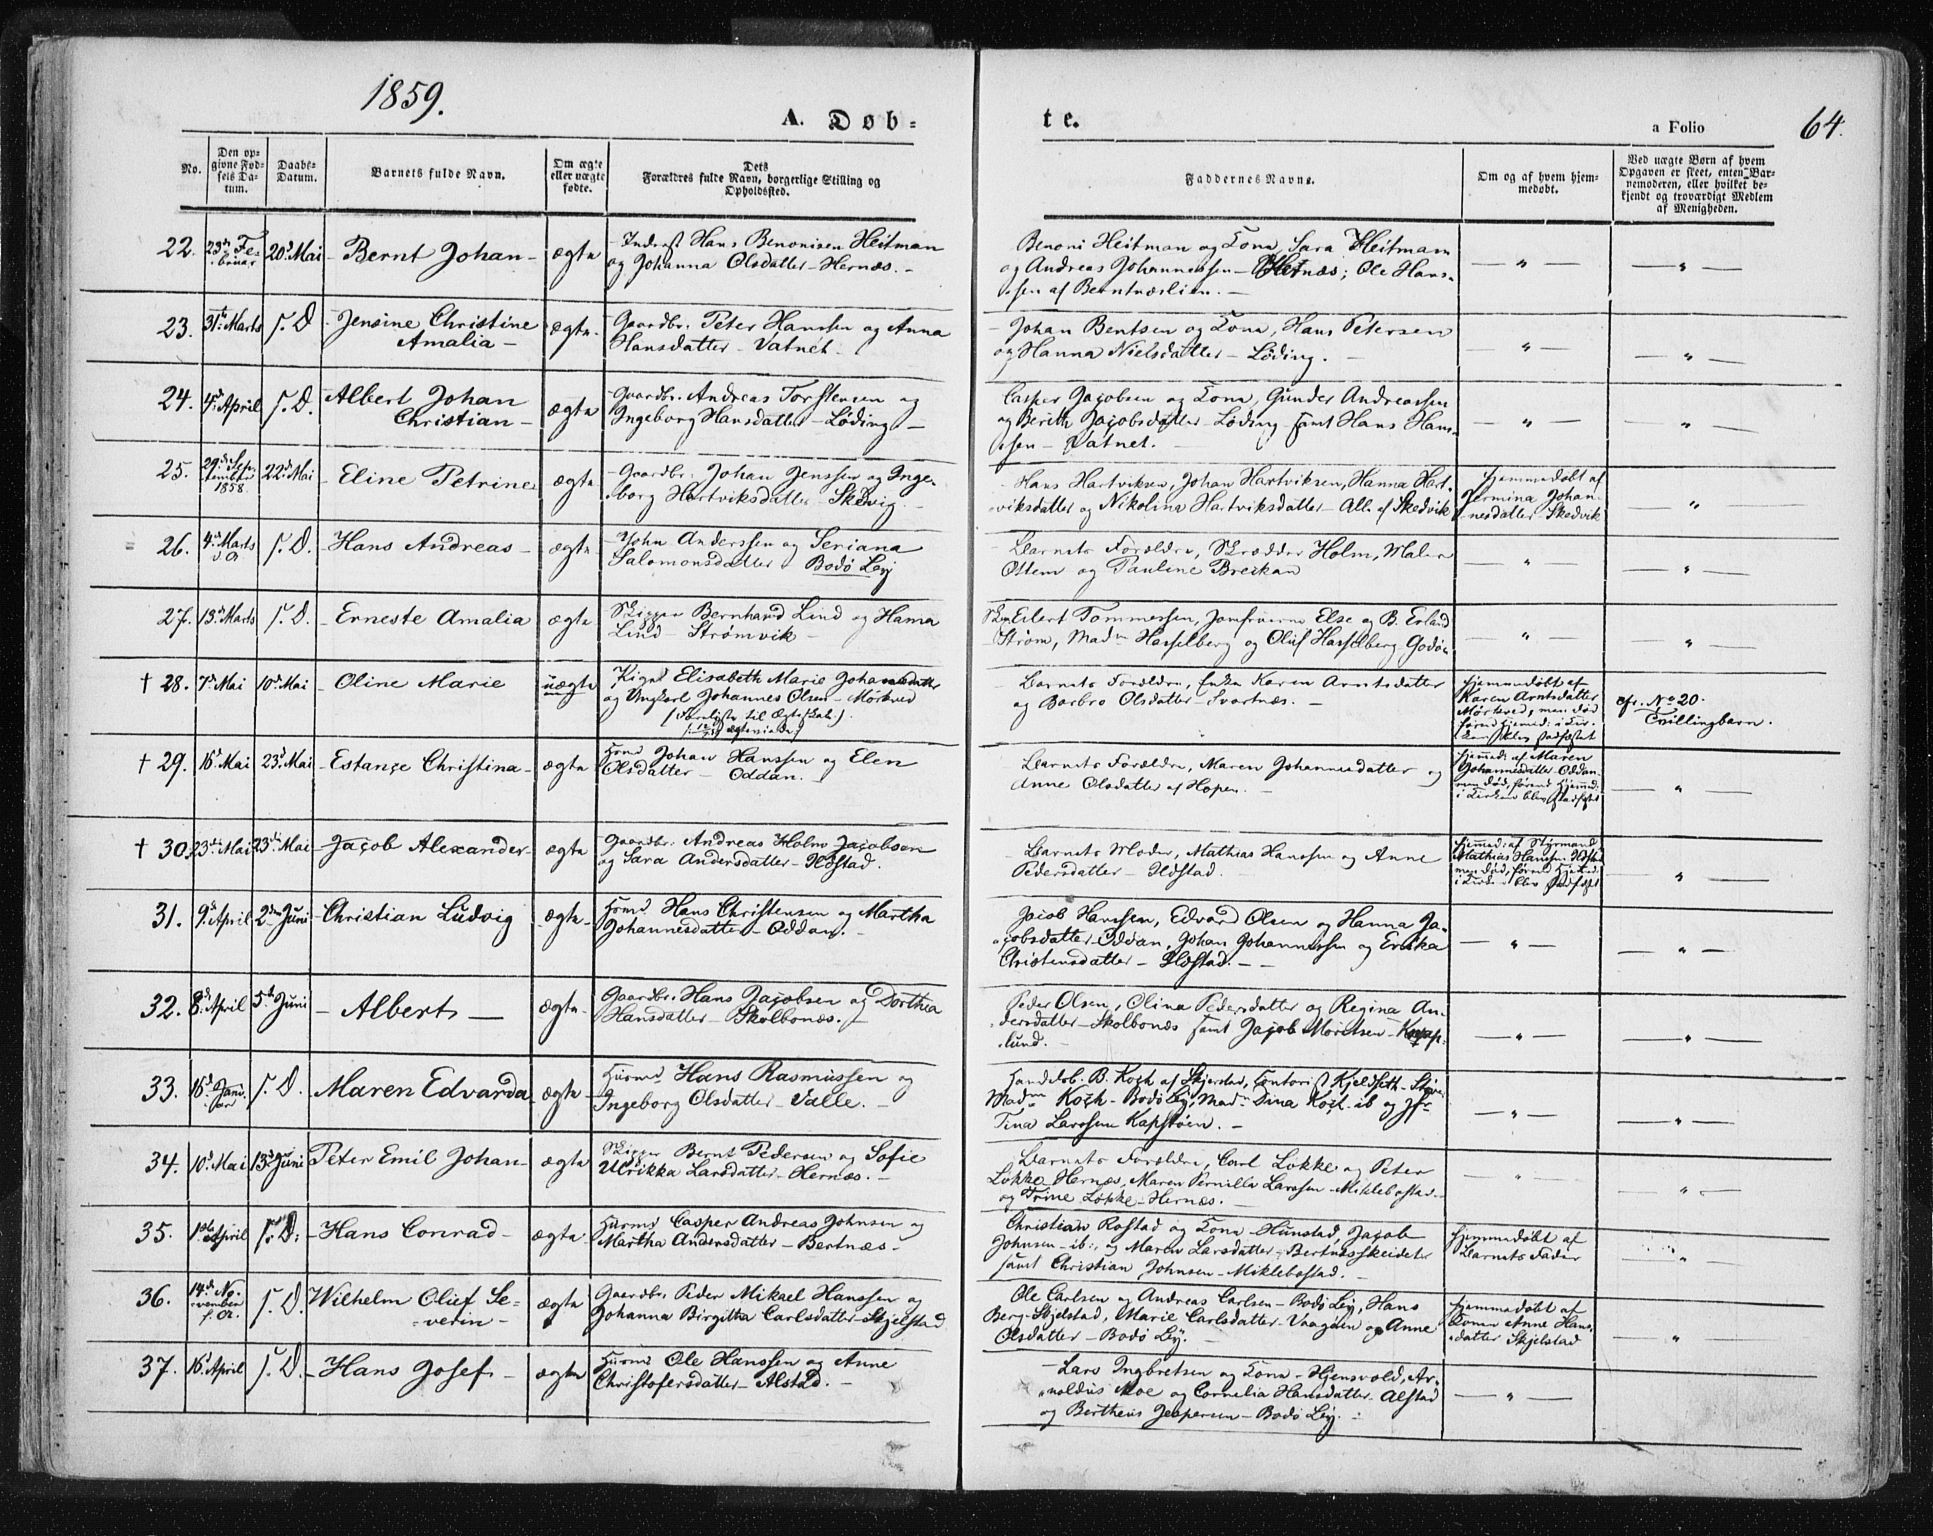 1859.
A. Døb-
te.
a Folio
64.
No.
Den op-
givne Fød-
sels Da-
tum.
Daabs-
Datum.
Barnets fulde Navn.
Om ægte
eller uægte
fødte.
Dets
Forældres fulde Navn, borgerlige Stilling og
Opholdsted.
Faddernes Navne.
Om og af hvem hjem-
medøbt.
Ved uægte Børn af hvem
Opgaven er skeet, enten Bar-
nemoderen, eller hvilket be-
kjendt og troværdigt Medlem
af Menigheden.
22. 23de Fe-
bruar 20d Mai - Bernt Johan - ægte
Inderst Hans Benonisen Heitman
og Johanna Olsdatter - Hernæs. -
Benoni Heitman og Kona, Sara Heitmam
og Andreas Johannessen - Hernæs; Ole Hans-
sen af Berntnæslien. -
— " — — " —
23. 31te Marts s. D - Jensine Christine
Amalia - ægte -
Gaardbr. Peter Hanssen og Anna
Hansdatter - Vatnet -
- Johan Bentsen og Kona, Hans Petersen
og Hanna Nielsdatter - Løding. -
" — — " —
24. 4d April s. D. Albert Johan
Christian - ægte
Gaardbr. Andreas Torstensen og
Ingeborg Hansdatter - Løding -
Casper Jacobsen og Kona, Gunder Andreassen
og Berith Jacobsdatter - Løding samt Hans Hans-
sen - Vatnet. -
— " — — " —
25. 29de Sep-
tember
1858. 22d Mai - Eline Petrine ægte
Gaardbr. Johan Jenssen og Inge-
borg Hartviksdatter Skedvig. -
- Hans Hartviksen, Johan Hartviksen, Hanna Hart-
viksdatter og Nikolina Hartviksdatter - Alle af Skedvik
Hjemmedøbt af
Jermina Johan-
nesdatter Skedvik
— " —
26. 4d Marts
d. A. s. D. - Hans Andreas - ægte
John Anderssen og Seriana
Salomonsdatter Bodø Lej
- Barnets Forældre, Skrædder Holm, Maler
Ottem og Pauline Breikan
— " — — " —
27. 13d Marts s. D. - Erneste Amalia ægte
Skipper Bernhard Lind og Hanna
Lind - Strømvik -
Skp. Eilert Tommessen, Jomfruerne Else og B. Erland
Strøm, Madm Hasselberg og Oluf Hasselberg Godø
— " — — " —
† 28. 7d Mai 10d Mai - Oline Marie uægte
Pigen Elisabeth Marie Johannesdatter
og Ungkarl Johannes Olsen - Mørkved
(Tærligste til Ægteskab).
- Barnets Forældre, Enke Karen Arntsdatter
og Barbro Olsdatter - Svartnæs. -
Hjemmedøbt af
Karen Arntsdatter
Mørkved, men død
førend Hjemmed. i Kir-
ken blev stadfæstet
cfr. No 20.
Tvillingbarn.
† 29. 16d Mai 23d Mai - Estançe Christina - ægte
Huusmd Johan Hanssen og Elen
Olsdatter - Oddan. -
- Barnets Forældre, Maren Johannesdatter og
Anne Olsdatter af Hopen. -
Hjemmed: af Maren
Johannesdatter Oddan
men død, førend Hjemmed:
i Kirken blev stadfæstet
— " —
† 30. 23de Mai 23de Mai - Jacob Alexander - ægte
Gaardbr. Andreas Holm Jacobsen
og Sara Andersdatter - Ildstad.
- Barnets Moder, Mathias Hanssen og Anne
Pedersdatter - Ildstad.
Hjemmed: af Styrmand
Mathias Hanssen Ildstad
men død, førend Hjemmed.
i Kirken blev stadfæstet
— " —
31. 9d April 2den Juni - Christian Ludvig ægte -
Huusmd Hans Christensen og Martha
Johannesdatter - Oddan. -
Jacob Hanssen, Edvard Olsen og Hanna Ja-
cobsdatter - Oddan, Johan Johannessen og Ericka
Christensdatter - Ildstad. - -
— " — — " —
32. 8d April 5d Juni - Albert - ægte -
Gaardbr. Hans Jacobsen og Dorthea
Hansdatter - Skolbonæs. -
Peder Olsen, Olina Pedersdatter og Regina An-
dersdatter - Skolbonæs samt Jacob Moritsen - Knap-
lund.
— " — — " —
33. 16d Janu-
ar s. D. Maren Edvarda ægte -
Huusmd Hans Rasmussen og
Ingeborg Olsdatter - Valle. -
Handelsb. B. Koch af Skjerstad, Contorist Kjeldseth -
Madm Koch - Bodø Lej, Madm Dina Koch - ib og Jfr
Tina Larssen Kapstøen. -
— " — — " —
34. 10d Mai 13d Juni Peter Emil Johan - ægte
Skipper Bernt Pedersen og Sofie
Ulrikka Larsdatter - Hernæs. -
- Barnets Forældre, Carl Løkke og Peter
Løkke - Hernæs, Maren Pernilla Larssen - Miklebostad -
og Trine Løkke - Hernæs. -
— " — — " —
35. 1ste April s. D. - Hans Conrad - ægte -
Huusmd Casper Andreas Johnsen og
Martha Andersdatter - Bertnæs -
Christian Rostad og Kona - Hunstad, Jacob
Johnsen - ib:, og Maren Larsdatter - Bertnæsskeidet
samt Christian Johnsen - Miklebostad. -
Hjemmedøbt af
Barnets Fader
— " —
36. 14de No-
vember
f. A. s. D. Wilhelm Oluf Se-
verin - ægte
Gaardbr. Peder Mikael Hanssen og
Johanna Birgitha Carlsdatter - Skjelstad
Ole Carlsen og Andreas Carlsen - Bodø Lej, Hans
Berg - Skjelstad, Marie Carlsdatter - Vaagøen og Anne
Olsdatter - Bodø Lej. -
Hjemmedøbt af
Konen Anne Hans-
datter Skjelstad
— " —
37. 16d April s. D. - Hans Josef - ægte
Huusmd Ole Hanssen og Anne
Christofersdatter - Alstad. -
- Lars Ingbretsen og Kona - Hjensvold, Ar-
noldus Moe og Cornelia Hansdatter - Alstad
og Bertheus Jespersen - Bodø Lej. -
— " —